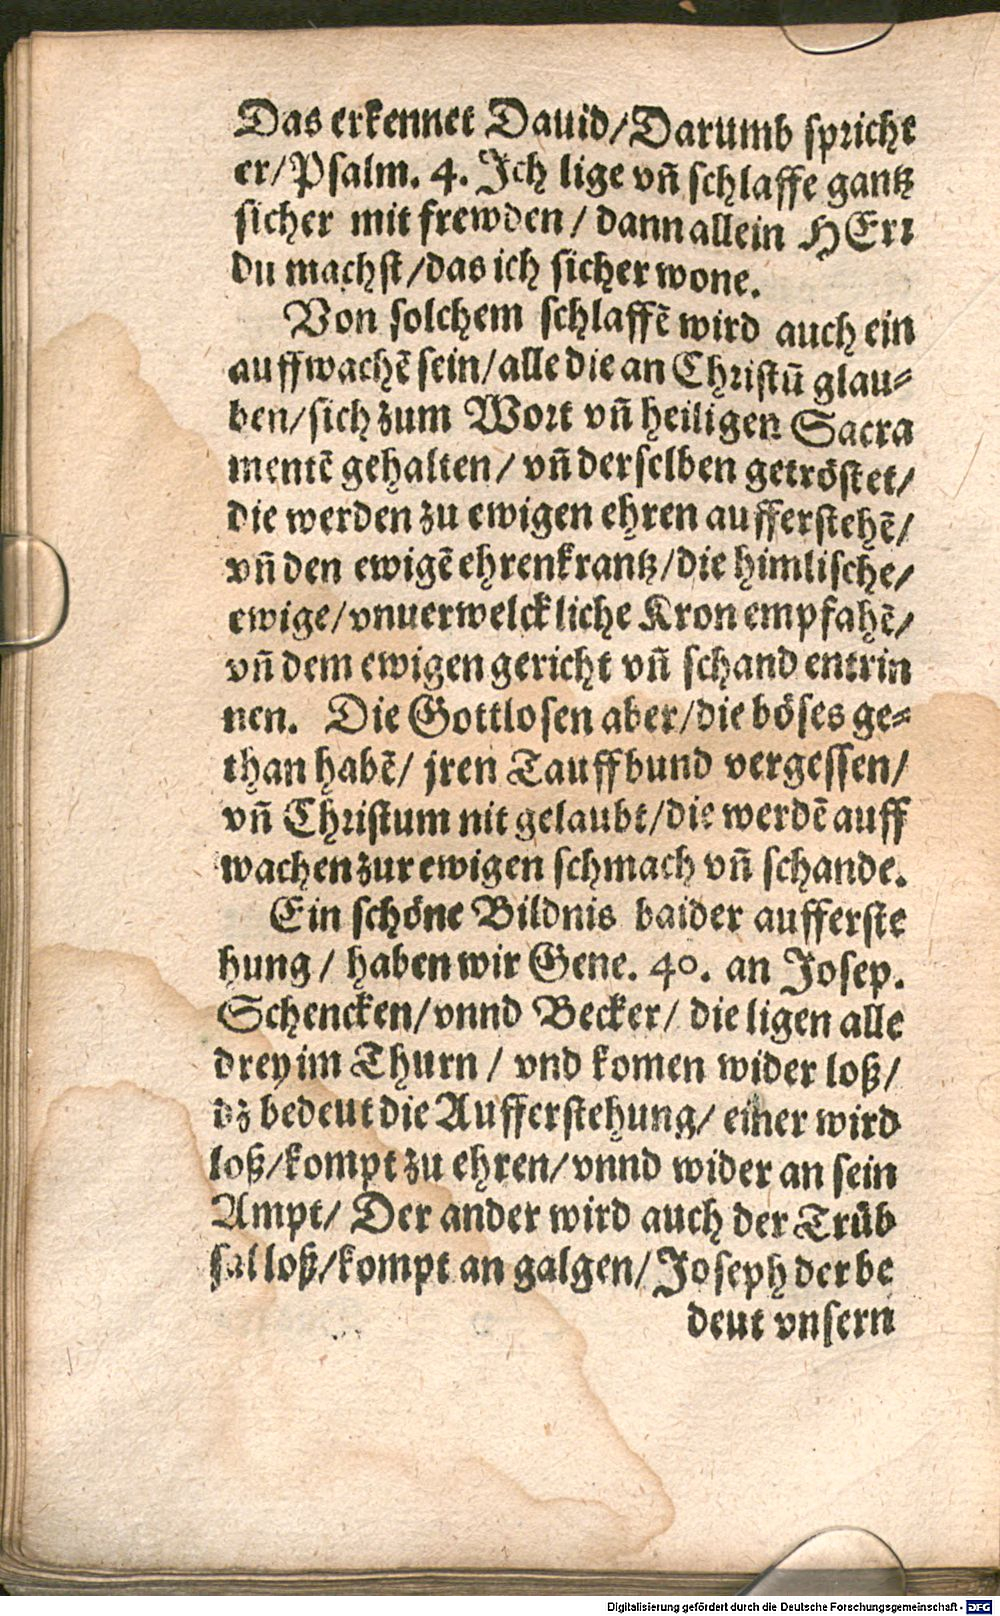 Das erkennet Dauid/Darumb spricht
er/Psalm. 4. Ich lige vñ schlaffe gantz
sicher mit frewden / dann allein HErr
du machst/das ich sicher wone.
Von solchem schlaffẽ wird auch ein
auffwachẽ sein/alle die an Christũ glau-
ben/sich zum Wort vñ heiligen Sacra
mentẽ gehalten/ vñ derselben getröstet/
die werden zu ewigen ehren aufferstehẽ/
vñ den ewigẽ ehrenkrantz/die himlische/
ewige/vnuerwelckliche Kron empfahẽ/
vñ dem ewigen gericht vñ schand entrin
nen. Die Gottlosen aber/die böses ge-
than habẽ/ jren Tauffbund vergessen/
vñ Christum nit gelaubt/die werdẽ auff
wachen zur ewigen schmach vñ schande.
Ein schöne Bildnis baider aufferste
hung / haben wir Gene. 40. an Josep.
Schencken/vnnd Becker/ die ligen alle
drey im Thurn / vnd komen wider loß/
dz bedeut die Aufferstehung/ einer wird
loß/kompt zu ehren/vnnd wider an sein
Ampt/ Der ander wird auch der Trüb
sal loß/kompt an galgen/Joseph der be
deut vnsern
Digitalisierung gefördert durch die Deutsche Forschungsgemeinschaft - DFG